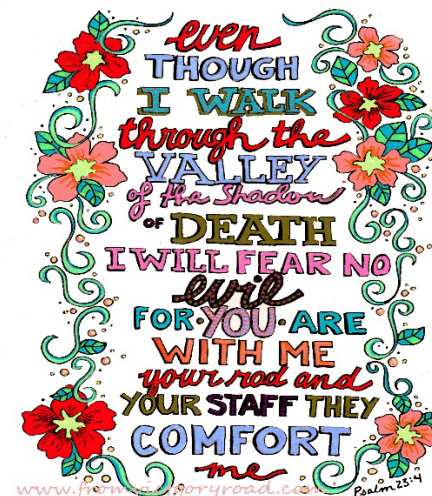 even
THOUGH
I WALK
through the
VALLEY
of the Shadow
OF DEATH
I WILL FEAR NO
evil
FOR • YOU • ARE
WITH ME
your rod and
YOUR STAFF THEY
COMFORT
me
Psalm 23:4